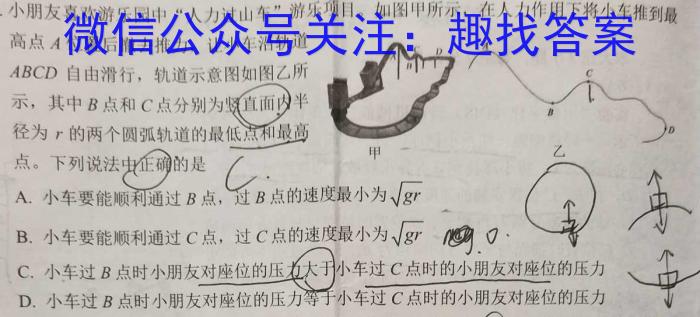 小朋友喜欢游乐园中“人力过山车”游乐项目，如图甲所示，在人力作用下将小车推到最
微信公众号关注：趣找答案
高点A
轨道
ABCD自由滑行，轨道示意图如图乙所
示，其中B点和C点分别为竖直面内半
径为r的两个圆弧轨道的最低点和最高
点。下列说法中正确的是
C
甲
乙
A
B
C
D
A. 小车要能顺利通过B点，过B点的速度最小为√gr
B. 小车要能顺利通过C点，过C点的速度最小为√gr
0.
C. 小车过B点时小朋友对座位的压力大于小车过C点时的小朋友对座位的压力
D. 小车过B点时小朋友对座位的压力等于小车过C点时的小朋友对座位的压力